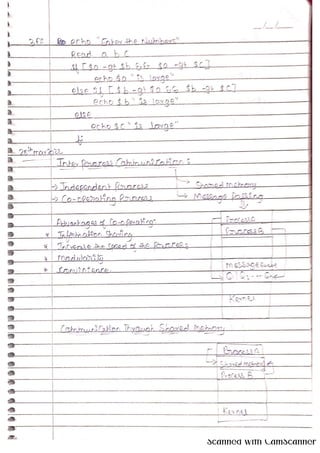 echo "Enter the Numbers"
Read a b c
if [ $a -gt $b && $a -gt $c]
echo $a "is large"
else if [ $b -gt $a && $b -gt $c]
echo $b "is large"
else
echo $c "is large"
fi
Inter Process Communication :
→ Independent Process → Shared Memory
→ Co-operating Process → Message Passing
Advantages of Co-operating Process A
* Information Sharing Process B
* Increase the Speed of the Process
* Modularity
* Convinience
Message Queue
Kernel
Communication Through Shared Memory
Process A
Shared Memory
Process B
Kernel
Scanned with CamScanner